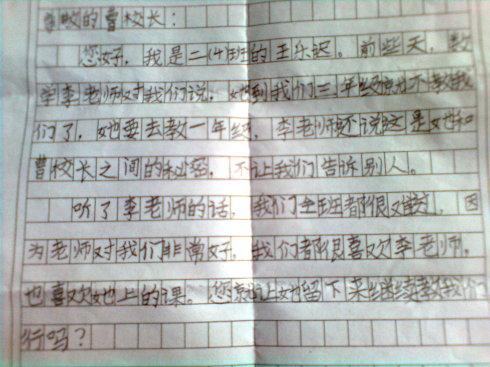 尊敬的曹校长：
您好，我是二(4)班的王乐迟。前些天，数
学李老师对我们说，她到我们三年级就不教我
们了，她要去教一年级，李老师还说这是她和
曹校长之间的秘密，不让我们告诉别人。
听了李老师的话，我们全班都很难过，因
为老师对我们非常好，我们都很喜欢李老师，
也喜欢她上的课。您就让她留下来继续教我们
行吗？